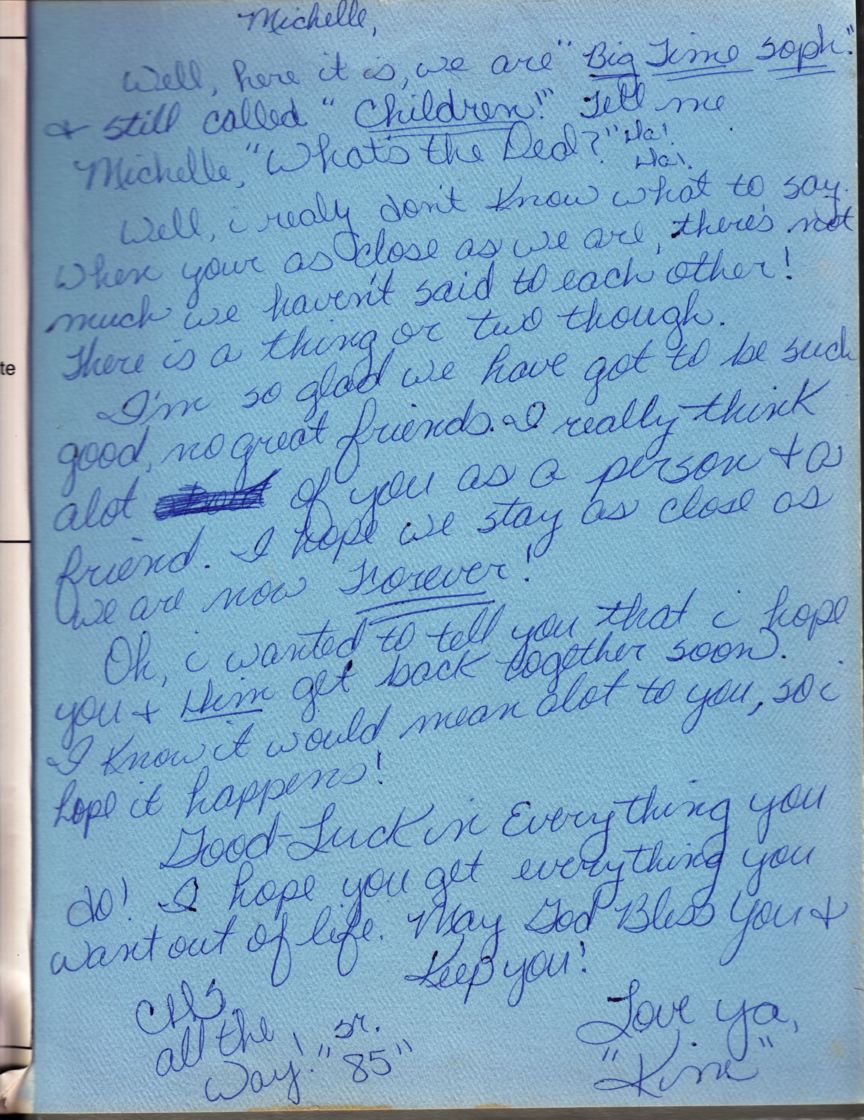 Michelle,
Well, here it is, we are "Big Time soph."
& still called "Children!" Tell me
Michelle, "What's the Deal?" Ha!
Ha!
Well, i realy don't know what to say.
When your as close as we are, there's not
much we haven't said to each other!
There is a thing or two though.
I'm so glad we have got to be such
good, no great friends. I really think
alot of you as a person & a
friend. I hope we stay as close as
we are now Forever!
Oh, i wanted to tell you that i hope
you & Him get back together soon.
I know it would mean alot to you, so i
hope it happens!
Good-Luck in Everything you
do! I hope you get everything you
want out of life. May God Bless You &
Keep you!
CHS
all the
way! sr.
"85"
Love ya,
"Kim"
te